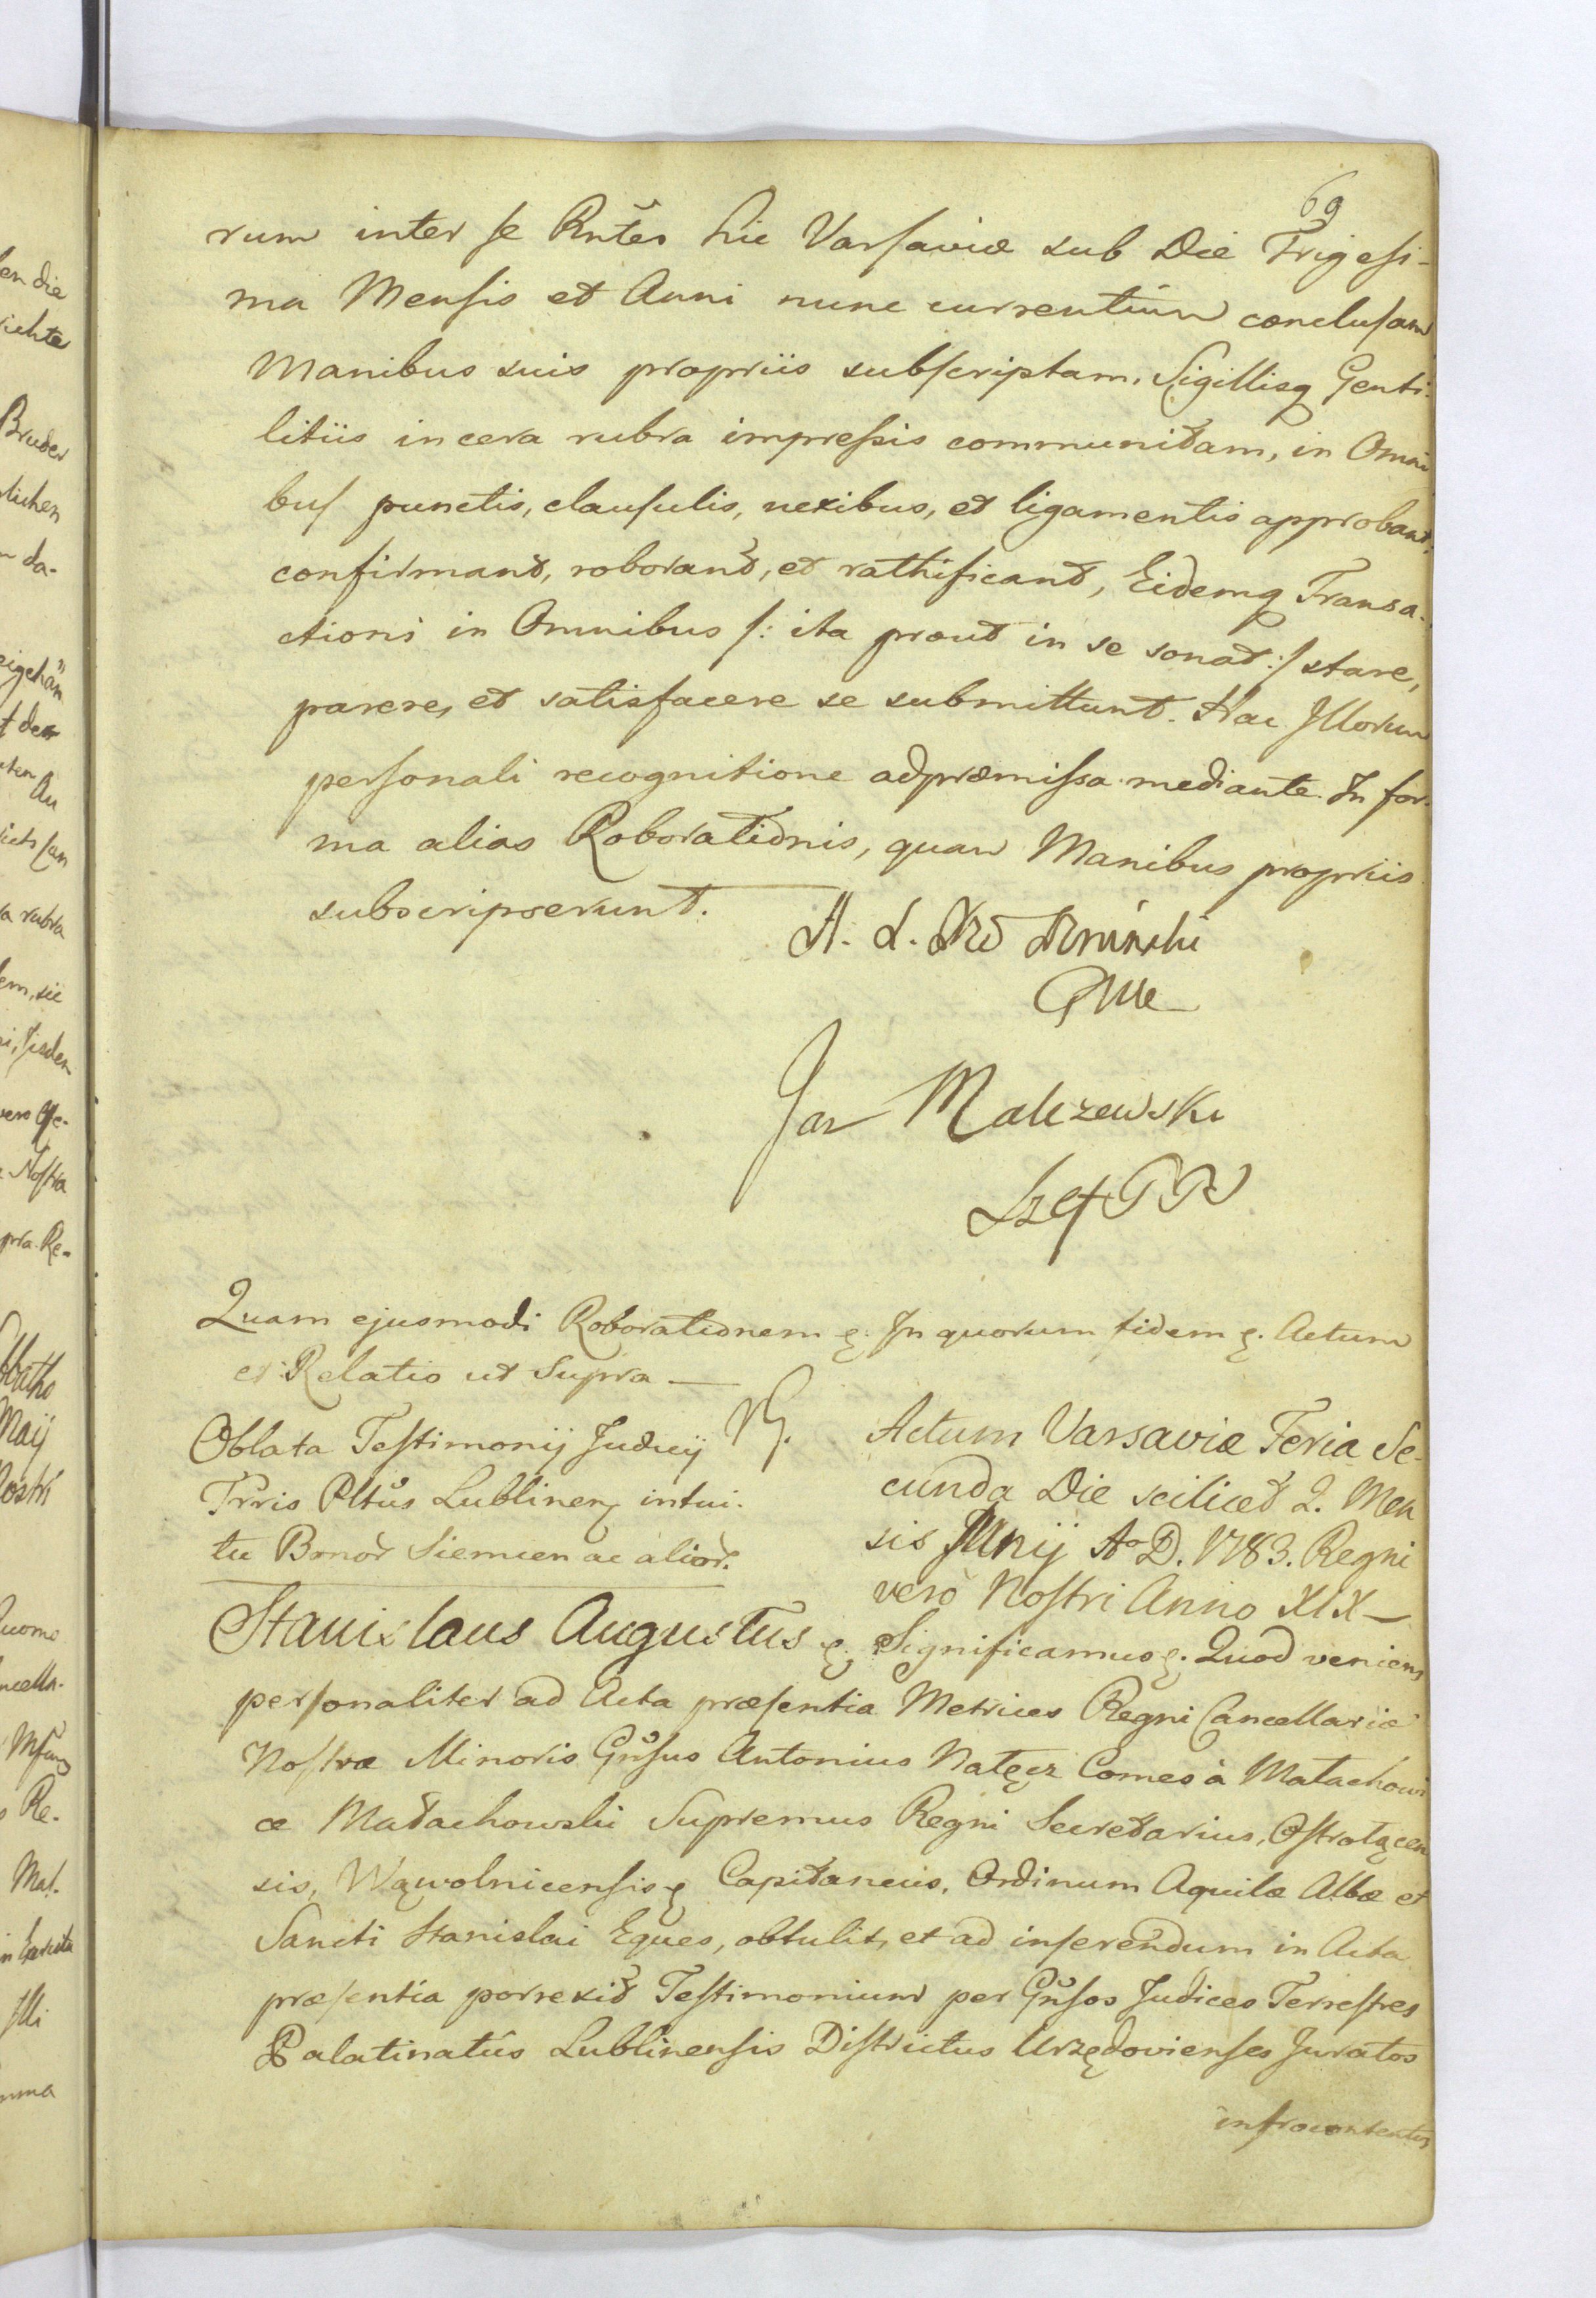 69
rum inter se Rntes hic Varsaviæ sub Die Trigesi-
ma Mensis et Anni nunc currentium conclusam
Manibus suis propriis subscriptam, Sigillisq Genti-
litiis in cera rubra impressis communitam, in Omni
bus punctis, clausulis, nexibus, et ligamentis approbant,
confirmant, roborant, et rathificant, Eidemq Transa-
ctioni in Omnibus /: ita prout in se sonat :/ stare,
parere, et satisfacere se submittunt. Hac Illorum
personali recognitione ad præmissa mediante. In for-
ma alias Roborationis, quam Manibus propriis
subscripserunt.
A. L.
Jan Malczewski
Szef
Quam ejusmodi Roborationem &. In quorum fidem &. Actum
et Relatio ut supra —
Oblata Testimonij Judicij
Trris Pltus Lublinen intui-
tu Bonor Siemien ac alior.
Actum Varsaviæ Feria Se-
cunda Die scilicet 2. Men
sis Junij Ao D. 1783. Regni
vero Nostri Anno XIX —
Stanislaus Augustus &. Significamus &. Quod veniens
personaliter ad Acta præsentia Metrices Regni Cancellariæ
Nostræ Minoris Gnsus Antonius Nałęcz Comes à Małachowi
ce Małachowski Supremus Regni Secretarius, Ostrołęcen
sis, Wąwolnicensisq Capitaneus, Ordinum Aquilæ Albæ et
Sancti Stanislai Eques, obtulit, et ad inserendum in Acta
præsentia porrexit Testimonium per Gnsos Judices Terrestres
Palatinatûs Lublinensis Districtus Urzędoviensis Juratos
infrocontentos